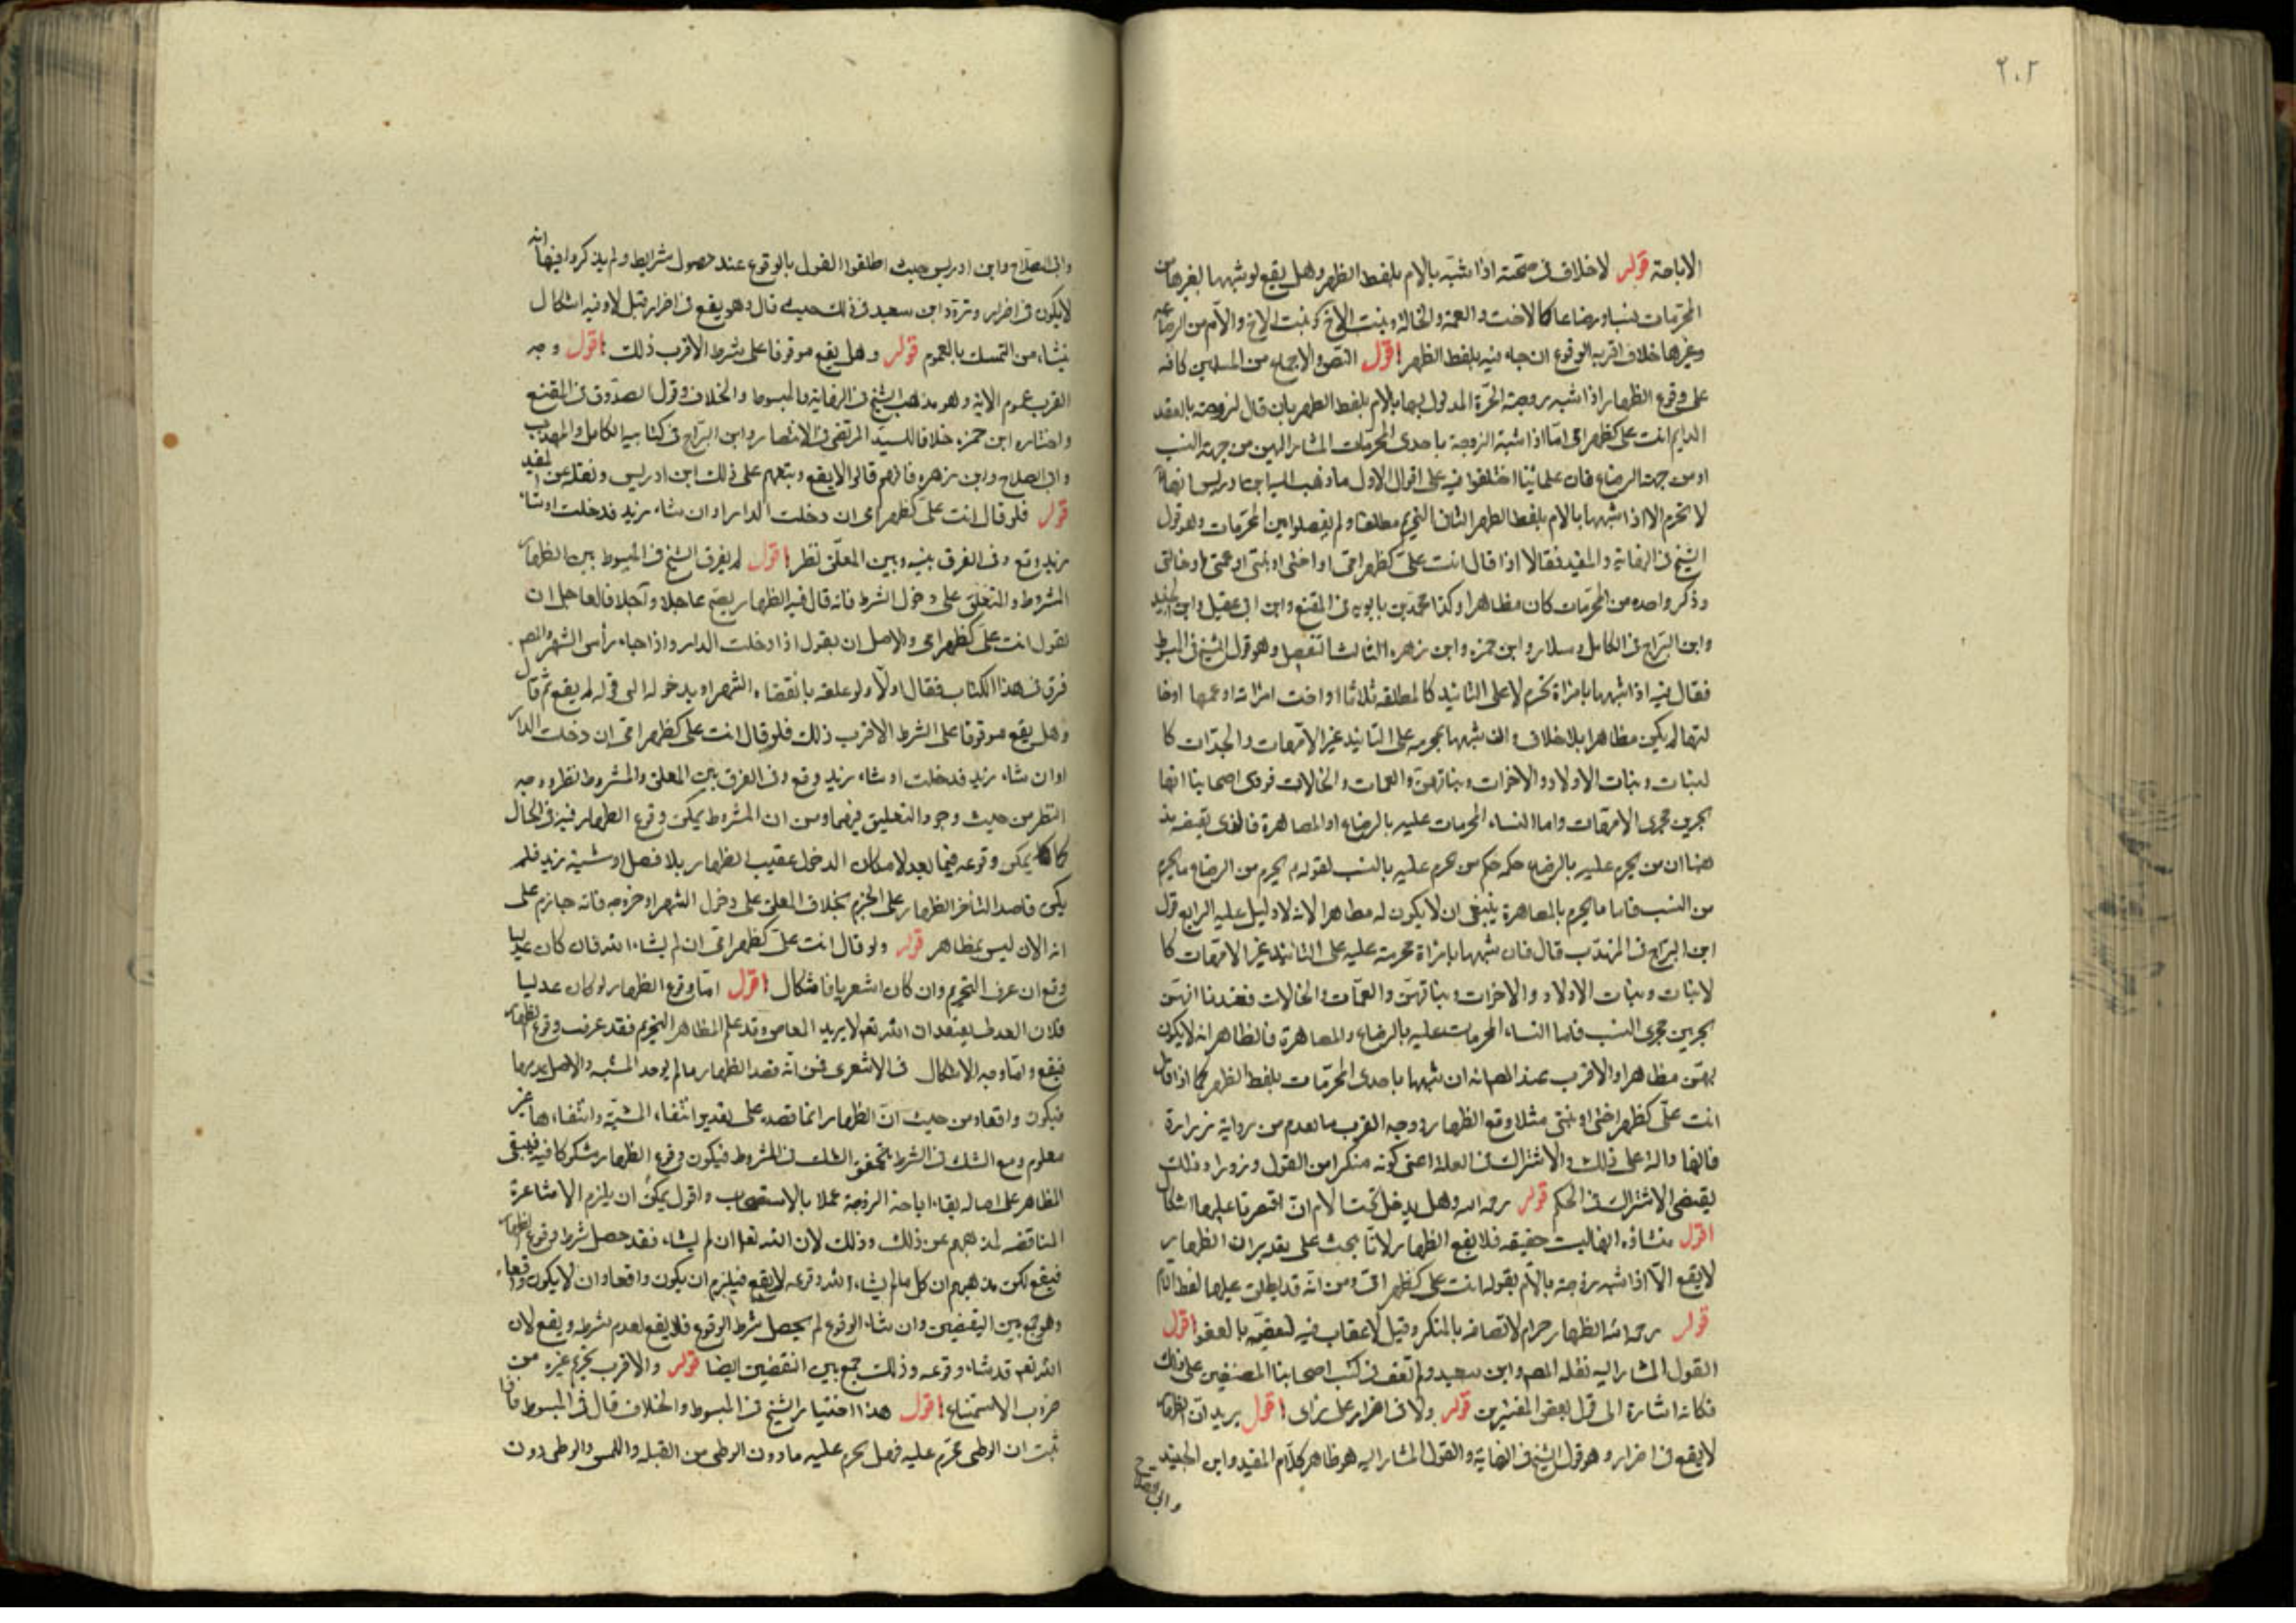 ٢٠٢
الاباحة قوله لا خلاف فى صحته اذا شبه بالام بلفظ الظهر وهل يقع لو شبهها بغيرها من
المحرمات نسبا و رضاعا كالاخت والعمة والخالة وبنت الاخ وبنت الاخ والام من الرضاعه
وغيرها خلاف اقربه الوقوع ان جاء فيه بلفظ الظهر اقول النص والاجماع من المسلمين كافه
على وقوع الظهار اذا شبه زوجته الحرة المدخول بها بالام بلفظ الظهر بان قال لزوجته بالعقد
الدايم انت على كظهر امى اما اذا شبه الزوجة باحدى المحرمات المشار اليهن من جهة النسب
او من جهة الرضاع فان علمائنا اختلفوا فيه على اقوال الاول ما ذهب اليه ابن ادريس انها
لا تحرم الا اذا شبهها بالام بلفظ الظهر الثانى التحريم مطلقا ولم يفصلوا بين المحرمات وهو قول
الشيخ فى النهاية والمفيد فقالا اذا قال انت على كظهر امى او اختى او بنتى او عمتى او خالتى
وذكر واحده من المحرمات كان مظاهرا وكذا محمد بن بابويه فى المقنع وابن ابى عقيل وابن الجنيد
وابن البراج فى الكامل وسلار وابن حمزه وابن زهره الثالث التفصيل وهو قول الشيخ فى المبسوط
فقال فيه اذا شبهها بامراة تحرم لا على التابيد كالمطلقه ثلاثا او اخت امراته او عمها او خا
لتها لم يكن مظاهرا بلا خلاف وان شبهها بمحرمه على التابيد غير الامهات والجدات كا
لبنات وبنات الاولاد والاخوات وبناتهن والعمات والخالات فروى اصحابنا انها
يجرين مجرى الامهات واما النساء المحرمات عليه بالرضاع او المصاهرة فالذى يقتضيه مذ
هبنا ان من يحرم عليه بالرضاع حكمه حكم من يحرم عليه بالنسب لقوله ع يحرم من الرضاع ما يحرم
من النسب فاما ما يحرم بالمصاهرة ينبغى ان لا يكون له مظاهرا لانه لا دليل عليه الرابع قول
ابن البراج فى المهذب قال فان شبهها بامراة محرمة عليه على التابيد غير الامهات كا
لابنات وبنات الاولاد والاخوات وبناتهن والعمات والخالات فعندنا انهن
يجرين مجرى النسب فاما النساء المحرمات عليه بالرضاع والمصاهرة فالظاهر انه لا يكون
بهن مظاهرا والاقرب عند المصانه ان شبهها باحدى المحرمات بلفظ الظهر كما اذا قال
انت على كظهر اختى او بنتى مثلا وقع الظهار ووجه القرب ما تقدم من رواية زرارة
فانها دالة على ذلك والاشتراك فى العلة اعنى كونه منكرا من القول وزورا وذلك
يقتضى الاشتراك فى الحكم قوله رحمه الله وهل يدخل تحت الام ان اقتصرنا عليها اشكال
اقول منشاؤه انها ليست حقيقه فلا يقع الظهار لانا نبحث على تقدير ان الظهار
لا يقع الا اذا شبه زوجته بالام بقوله انت على كظهر امى ومن انه قد يطلق عليها لفظ الام
قوله رحمه الله الظهار حرام لاتصافه بالمنكر وقيل لا عقاب فيه لتعقبه بالعفو اقول
القول المشار اليه نقله المص وابن سعيد ولم نقف فى كتب اصحابنا المصنفين على ذلك
فكانه اشارة الى قول بعض المفسرين قوله ولا فى اضرار على راى اقول يريد ان الظهار
لا يقع فى اضرار وهو قول الشيخ فى النهاية والقول المشار اليه هو ظاهر كلام المفيد وابن الجنيد
وابى الصلاح
وابى الصلاح وابن ادريس حيث اطلقوا القول بالوقوع عند حصول شرايط ولم يذكروا فيها انه
لا يكون فى اضرار وتردد ابن سعيد فى ذلك حيث قال وهو يقع فى اضرار قيل لا وفيه اشكال
ينشاء من التمسك بالعموم قوله وهل يقع موقوفا على شرط الاقرب ذلك اقول وجه
القرب عموم الاية وهو مذهب الشيخ فى النهاية والمبسوط والخلاف وقول الصدوق فى المقنع
واختاره ابن حمزه خلافا للسيد المرتضى فى الانتصار وابن البراج فى كتابيه الكامل والمهذب
وابى الصلاح وابن زهره فانهم قالوا لا يقع وتبعهم على ذلك ابن ادريس ونقله عن المفيد
قوله فلو قال انت على كظهر امى ان دخلت الدار او ان شاء زيد فدخلت او شاء
زيد وقع وفى الفرق بينه وبين المعلق نظر اقول لم يفرق الشيخ فى المبسوط بين الظهار
المشروط والمتعلق على دخول الشرط فانه قال فيه الظهار يصح عاجلا وآجلا فالعاجل ان
يقول انت على كظهر امى والاجل ان يقول اذا دخلت الدار واذا جاء رأس الشهر والمص
فرق فى هذا الكتاب فقال اولا ولو علقه بانقضاء الشهر او بدخوله الى قوله لم يقع ثم قال
وهل يقع موقوفا على الشرط الاقرب ذلك فلو قال انت على كظهر امى ان دخلت الدار
او ان شاء زيد فدخلت او شاء زيد وقع وفى الفرق بين المعلق والمشروط نظر ووجه
النظر من حيث وجود التعليق فيهما ومن ان المشروط يمكن وقوع الظهار فيه فى الحال
كما يمكن وقوعه فيما بعد لامكان الدخول عقيب الظهار بلا فصل او مشية زيد فلم
يكن قاصدا لتاخر الظهار على الجزم بخلاف المعلق على دخول الشهر او خروجه فانه جازم على
انه الان ليس بمظاهر قوله ولو قال انت على كظهر امى ان لم يشاء الله فان كان عدليا
وقع ان عرف التحريم وان كان اشعريا فاشكال اقول اما وقوع الظهار لو كان عدليا
فلان العدلى يعتقد ان الله تعالى لا يريد المعاصى وقد علم المظاهر التحريم فقد عرف وقوع الظهار
فيقع واما وجه الاشكال فى الاشعرى فمن انه قصد الظهار ما لم يوجد المشيه والاصل عدمها
فيكون واقعا ومن حيث ان الظهار انما قصده على تقدير انتفاء المشية وانتفاءها غير
معلوم ومع الشك فى الشرط يتحقق الشك فى المشروط فيكون وقوع الظهار مشكوكا فيه فيبقى
المظاهر على اصاله بقاء اباحة الزوجة عملا بالاستصحاب واقول يمكن ان يلزم الاشاعرة
المناقضه لمذهبهم عن ذلك وذلك لان الله تعالى ان لم يشاء فقد حصل شرط وقوع الظهار
فيقع لكن مذهبهم ان كل ما لم يشاء الله وقوعه لا يقع فيلزم ان يكون واقعا وان لا يكون واقعا
وهو جمع بين النقيضين وان شاء الوقوع لم يحصل شرط الوقوع فلا يقع لعدم شرطه ويقع لان
الله تعالى قد شاء وقوعه وذلك جمع بين النقضين ايضا قوله والاقرب تحريم غيره من
ضروب الاستمتاع اقول هذا اختيار الشيخ فى المبسوط والخلاف قال فى المبسوط فاذا
ثبت ان الوطى محرم عليه فهل يحرم عليه ما دون الوطى من القبله واللمس والوطى دون